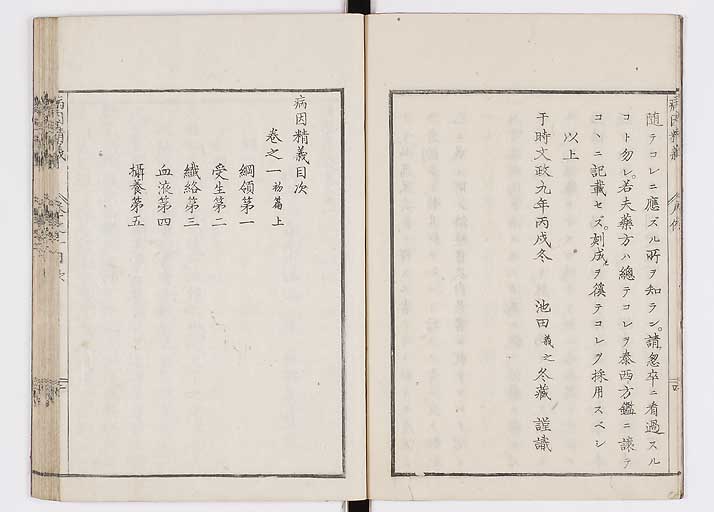 隨テコレニ應ズル所ヲ知ラン。請忽卒ニ看過スル
コト勿レ。若夫藥方ハ總テコレヲ泰西方鑑ニ讓テ
コヽニ記載セズ。刻成ヲ徯テコレヲ採用スベシ
以上
于時文政九年丙戌冬　池田義之冬藏　謹識
病因精義目次
卷之一 初篇上
綱領第一
受生第二
纖絡第三
血液第四
攝養第五
病因精義